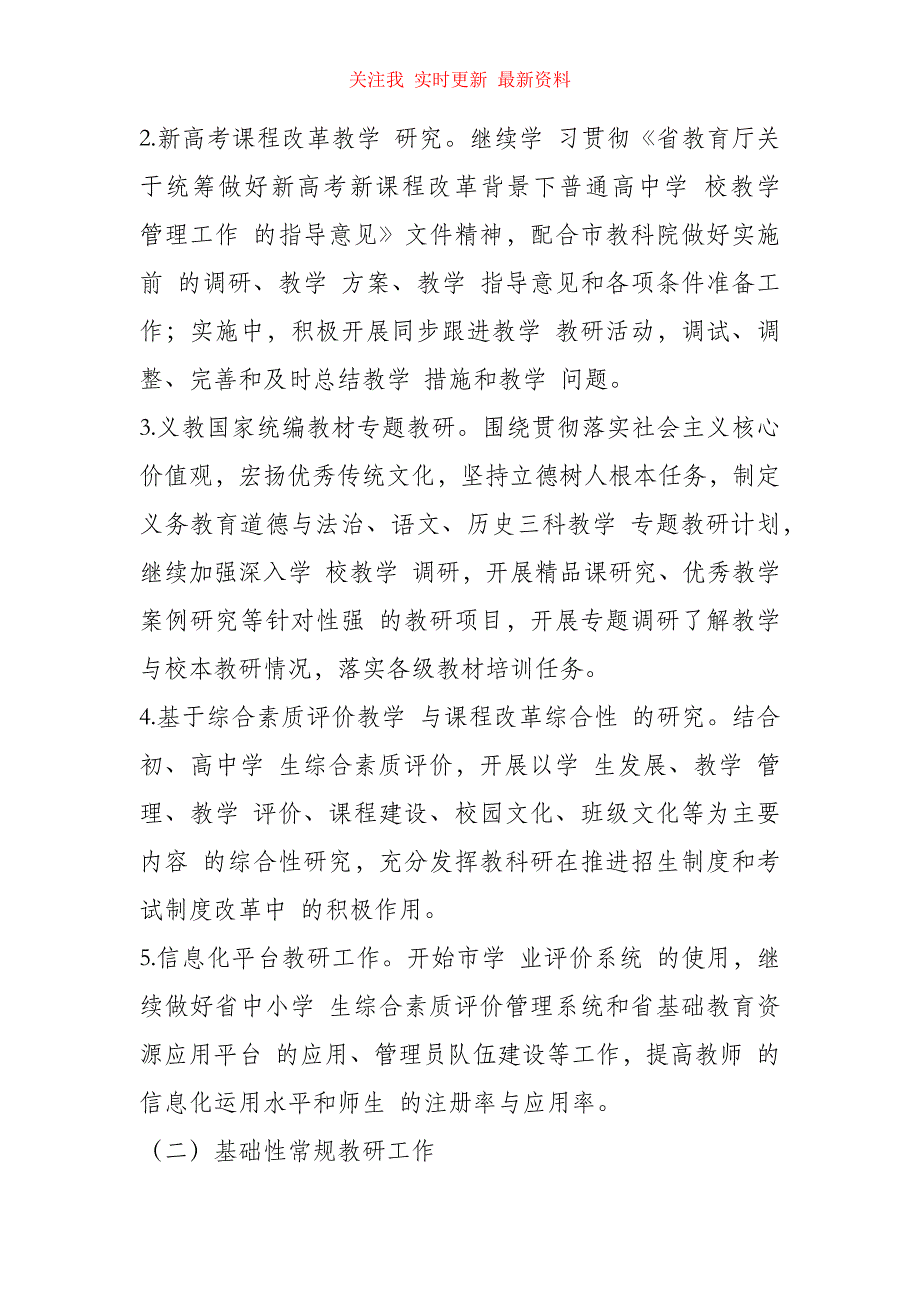 关注我 实时更新 最新资料
2.新高考课程改革教学 研究。继续学 习贯彻《省教育厅关
于统筹做好新高考新课程改革背景下普通高中学 校教学
管理工作 的指导意见》文件精神，配合市教科院做好实施
前 的调研、教学 方案、教学 指导意见和各项条件准备工
作；实施中，积极开展同步跟进教学 教研活动，调试、调
整、完善和及时总结教学 措施和教学 问题。
3.义教国家统编教材专题教研。围绕贯彻落实社会主义核心
价值观，宏扬优秀传统文化，坚持立德树人根本任务，制定
义务教育道德与法治、语文、历史三科教学 专题教研计划，
继续加强深入学 校教学 调研，开展精品课研究、优秀教学
案例研究等针对性强 的教研项目，开展专题调研了解教学
与校本教研情况，落实各级教材培训任务。
4.基于综合素质评价教学 与课程改革综合性 的研究。结合
初、高中学 生综合素质评价，开展以学 生发展、教学 管
理、教学 评价、课程建设、校园文化、班级文化等为主要
内容 的综合性研究，充分发挥教科研在推进招生制度和考
试制度改革中 的积极作用。
5.信息化平台教研工作。开始市学 业评价系统 的使用，继
续做好省中小学 生综合素质评价管理系统和省基础教育资
源应用平台 的应用、管理员队伍建设等工作，提高教师 的
信息化运用水平和师生 的注册率与应用率。
（二）基础性常规教研工作